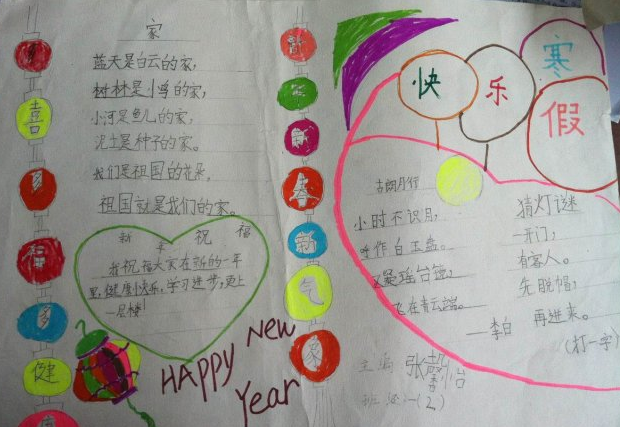 家
蓝天是白云的家,
树林是小鸟的家,
小河是鱼儿的家,
泥土是种子的家。
我们是祖国的花朵,
祖国就是我们的家。
新年祝福
我祝福大家在新的一年
里,健康快乐,学习进步,更上
一层楼!
HAPPY New
Year
喜
健
春
新
气
象
快乐
寒
假
古朗月行
小时不识月,
呼作白玉盘。
又疑瑶台镜,
飞在青云端。
——李白
猜灯谜
一开门,
有客人。
先脱帽,
再进来。
(打一字)
主编
班级
(2)